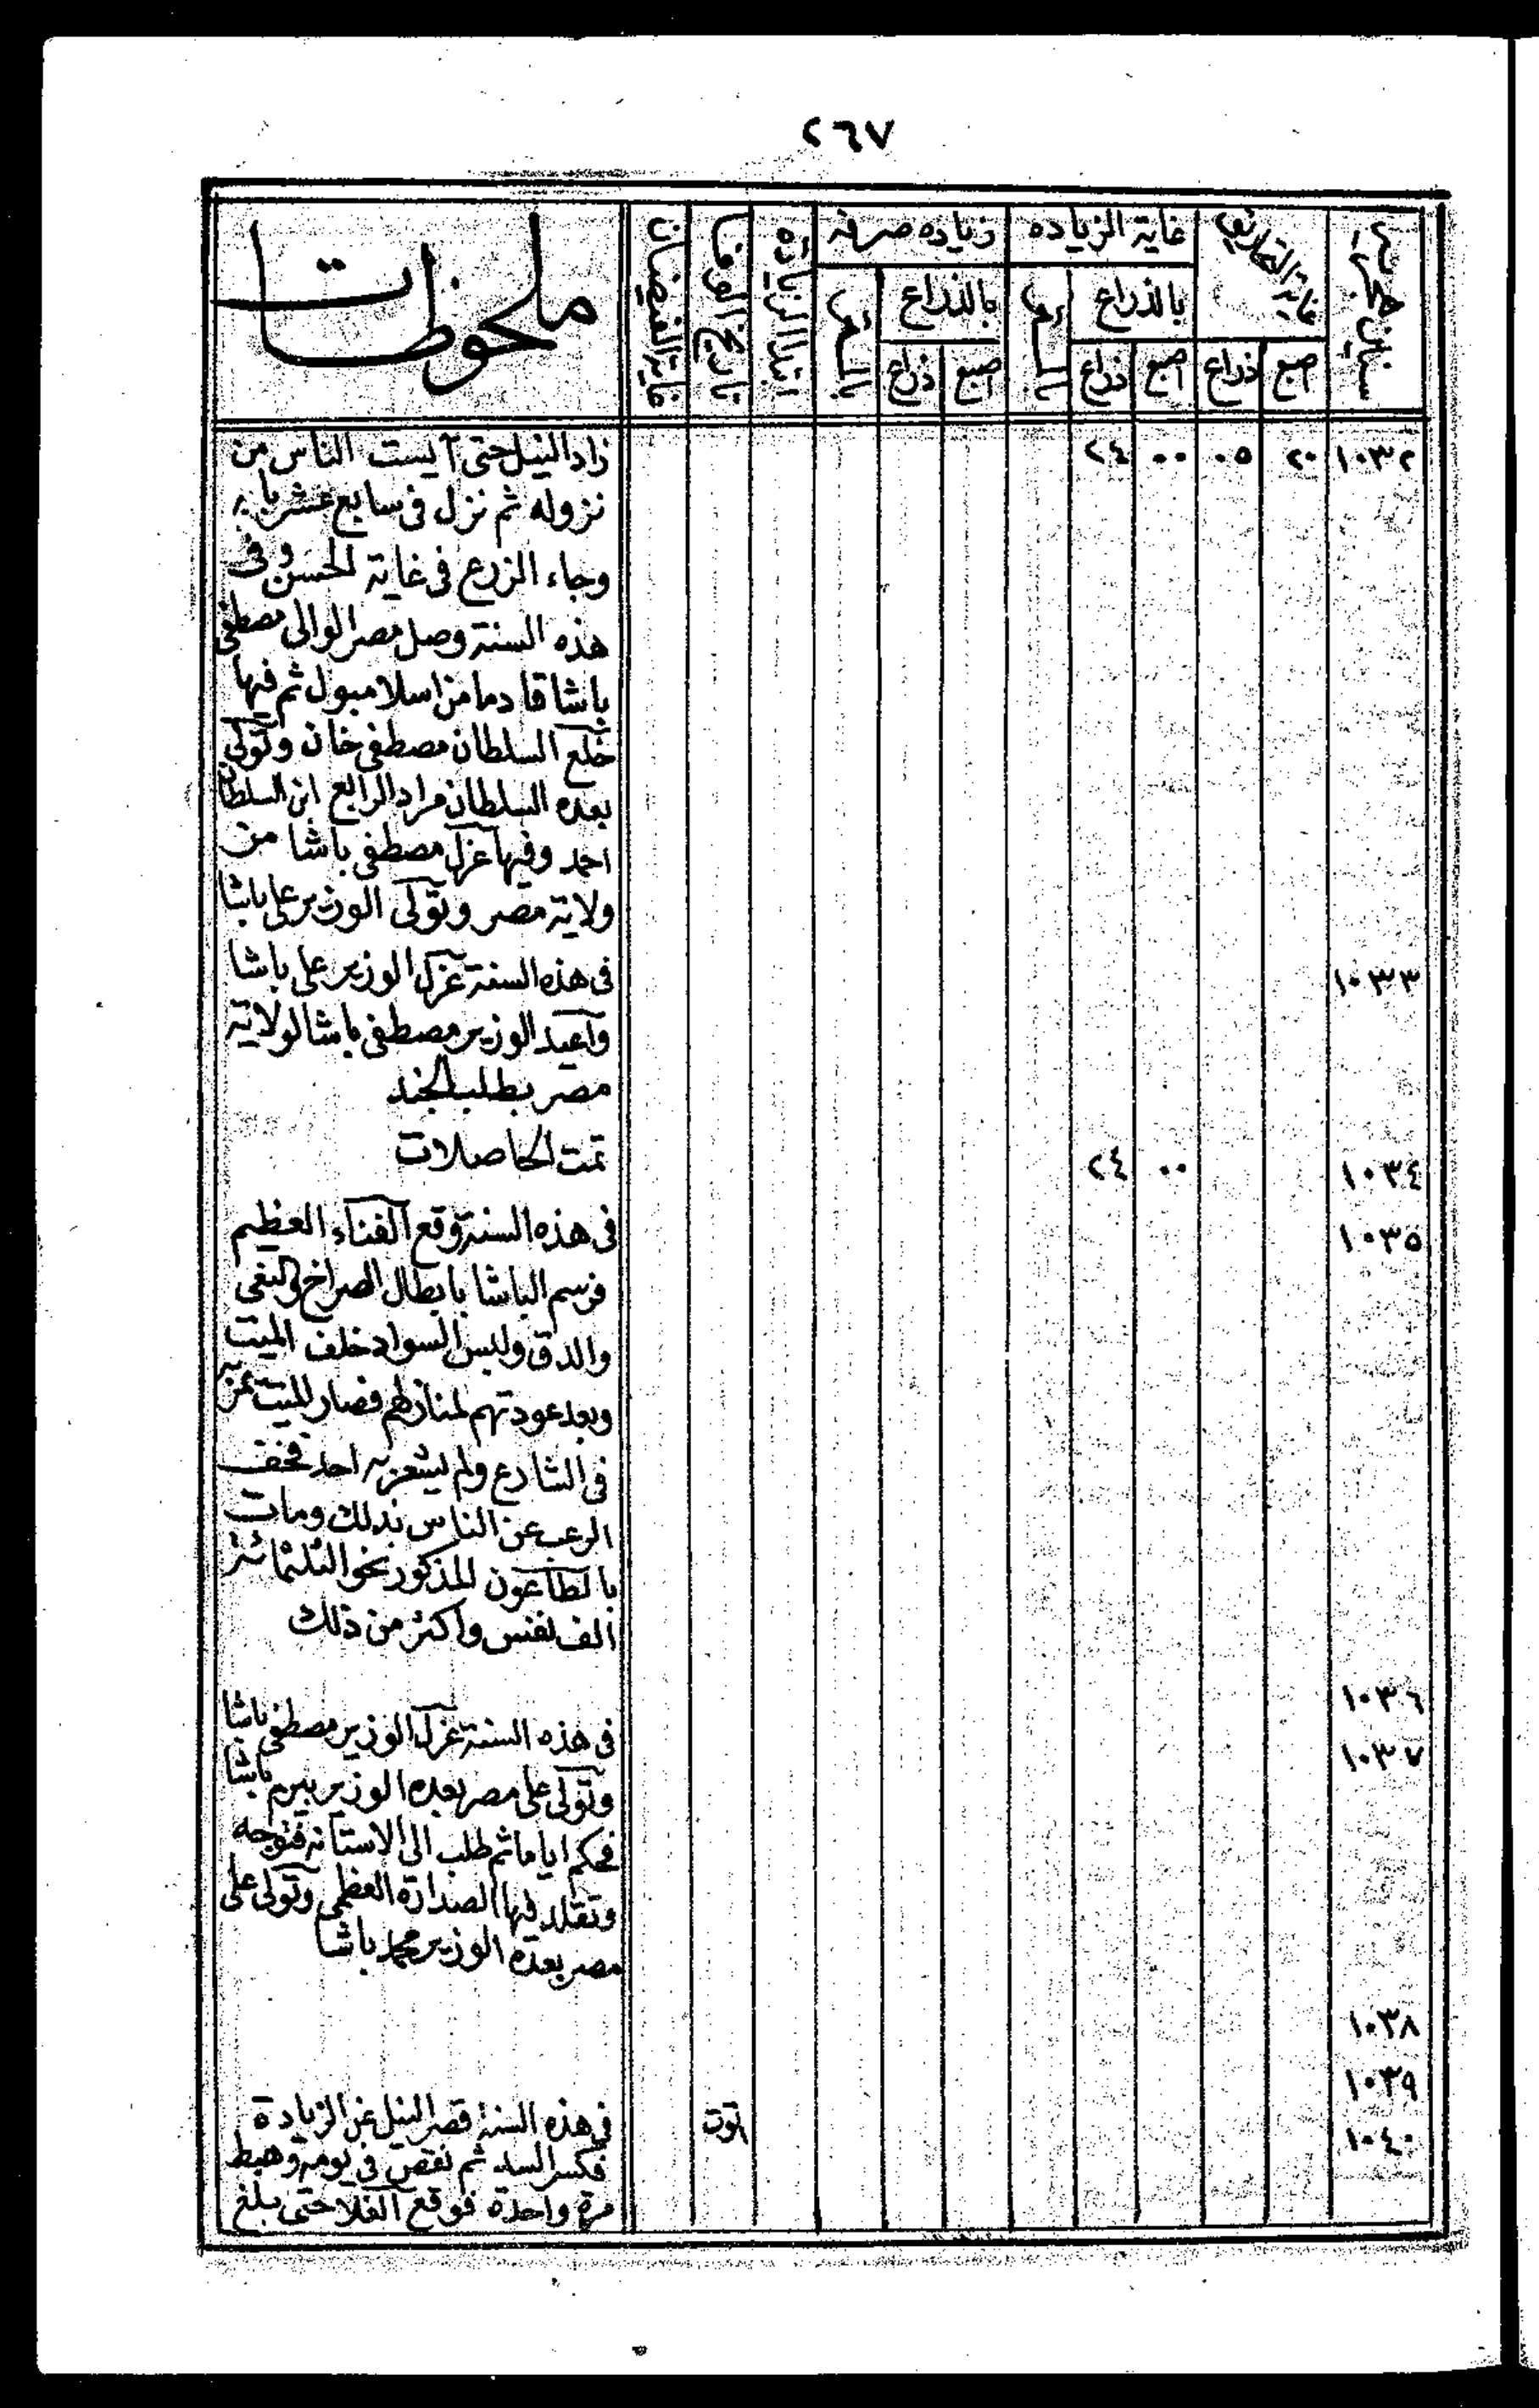 ٢٦٧
سنين هجرية
غاية التحاريق
غاية الزياده
زياده صرفه
ابتدا الزياده
تاريخ الوفا
غاية الفيضان
ملحوظات
بالذراع
بالذراع
اصبع ذراع اصبع ذراع اصبع ذراع
١٠٣٢ ٢٠ ٠٥ ٠٠ ٢٤ زاد النيل حتى آيست الناس من
نزوله ثم نزل فى سابع عشر بابه
وجاء الزرع فى غاية الحسن وفى
هذه السنة وصل مصر الوالى مصطفى
باشا قادما من اسلامبول ثم فيها
خلع السلطان مصطفى خان وتولى
بعده السلطان مراد الرابع ابن السلطان
احمد وفيها عزل مصطفى باشا من
ولاية مصر وتولى الوزير على باشا
١٠٣٣ فى هذه السنة عزل الوزير على باشا
وآعيد الوزير مصطفى باشا لولاية
مصر بطلب الجند
١٠٣٤ ٠٠ ٢٤ تمت الحاصلات
١٠٣٥ فى هذه السنة وقع الفناء العظيم
فرسم الباشا بابطال الصراخ والنعى
والدق ولبس السواد خلف الميت
وبعد عودتهم لمنازلهم فصار الميت يمر به
فى الشارع ولم يشعر به احد فخف
الرعب عن الناس بذلك ومات
بالطاعون المذكور نحو الثلثمائة
الف نفس واكثر من ذلك
١٠٣٦
١٠٣٧ فى هذه السنة عزل الوزير مصطفى باشا
وتولى على مصر بعده الوزير بيرم باشا
فحكم اياما ثم طلب الى الاستانه فتوجه
وتقلد فيها الصدارة العظمى وتولى على
مصر بعده الوزير محمد باشا
١٠٣٨
١٠٣٩
١٠٤٠ توت فى هذه السنة قصر النيل عن الزيادة
فكسر السد ثم نقص فى يومه وهبط
مرة واحدة فوقع الغلا حتى بلغ